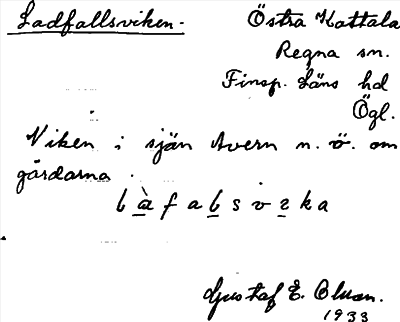 Ladfallsviken.
Östra Kattala
Regna sn.
Finsp. Läns hd
Ögl.
Viken i sjön Avern n. ö. om
gårdarna
Gustaf E. Olson.
1933